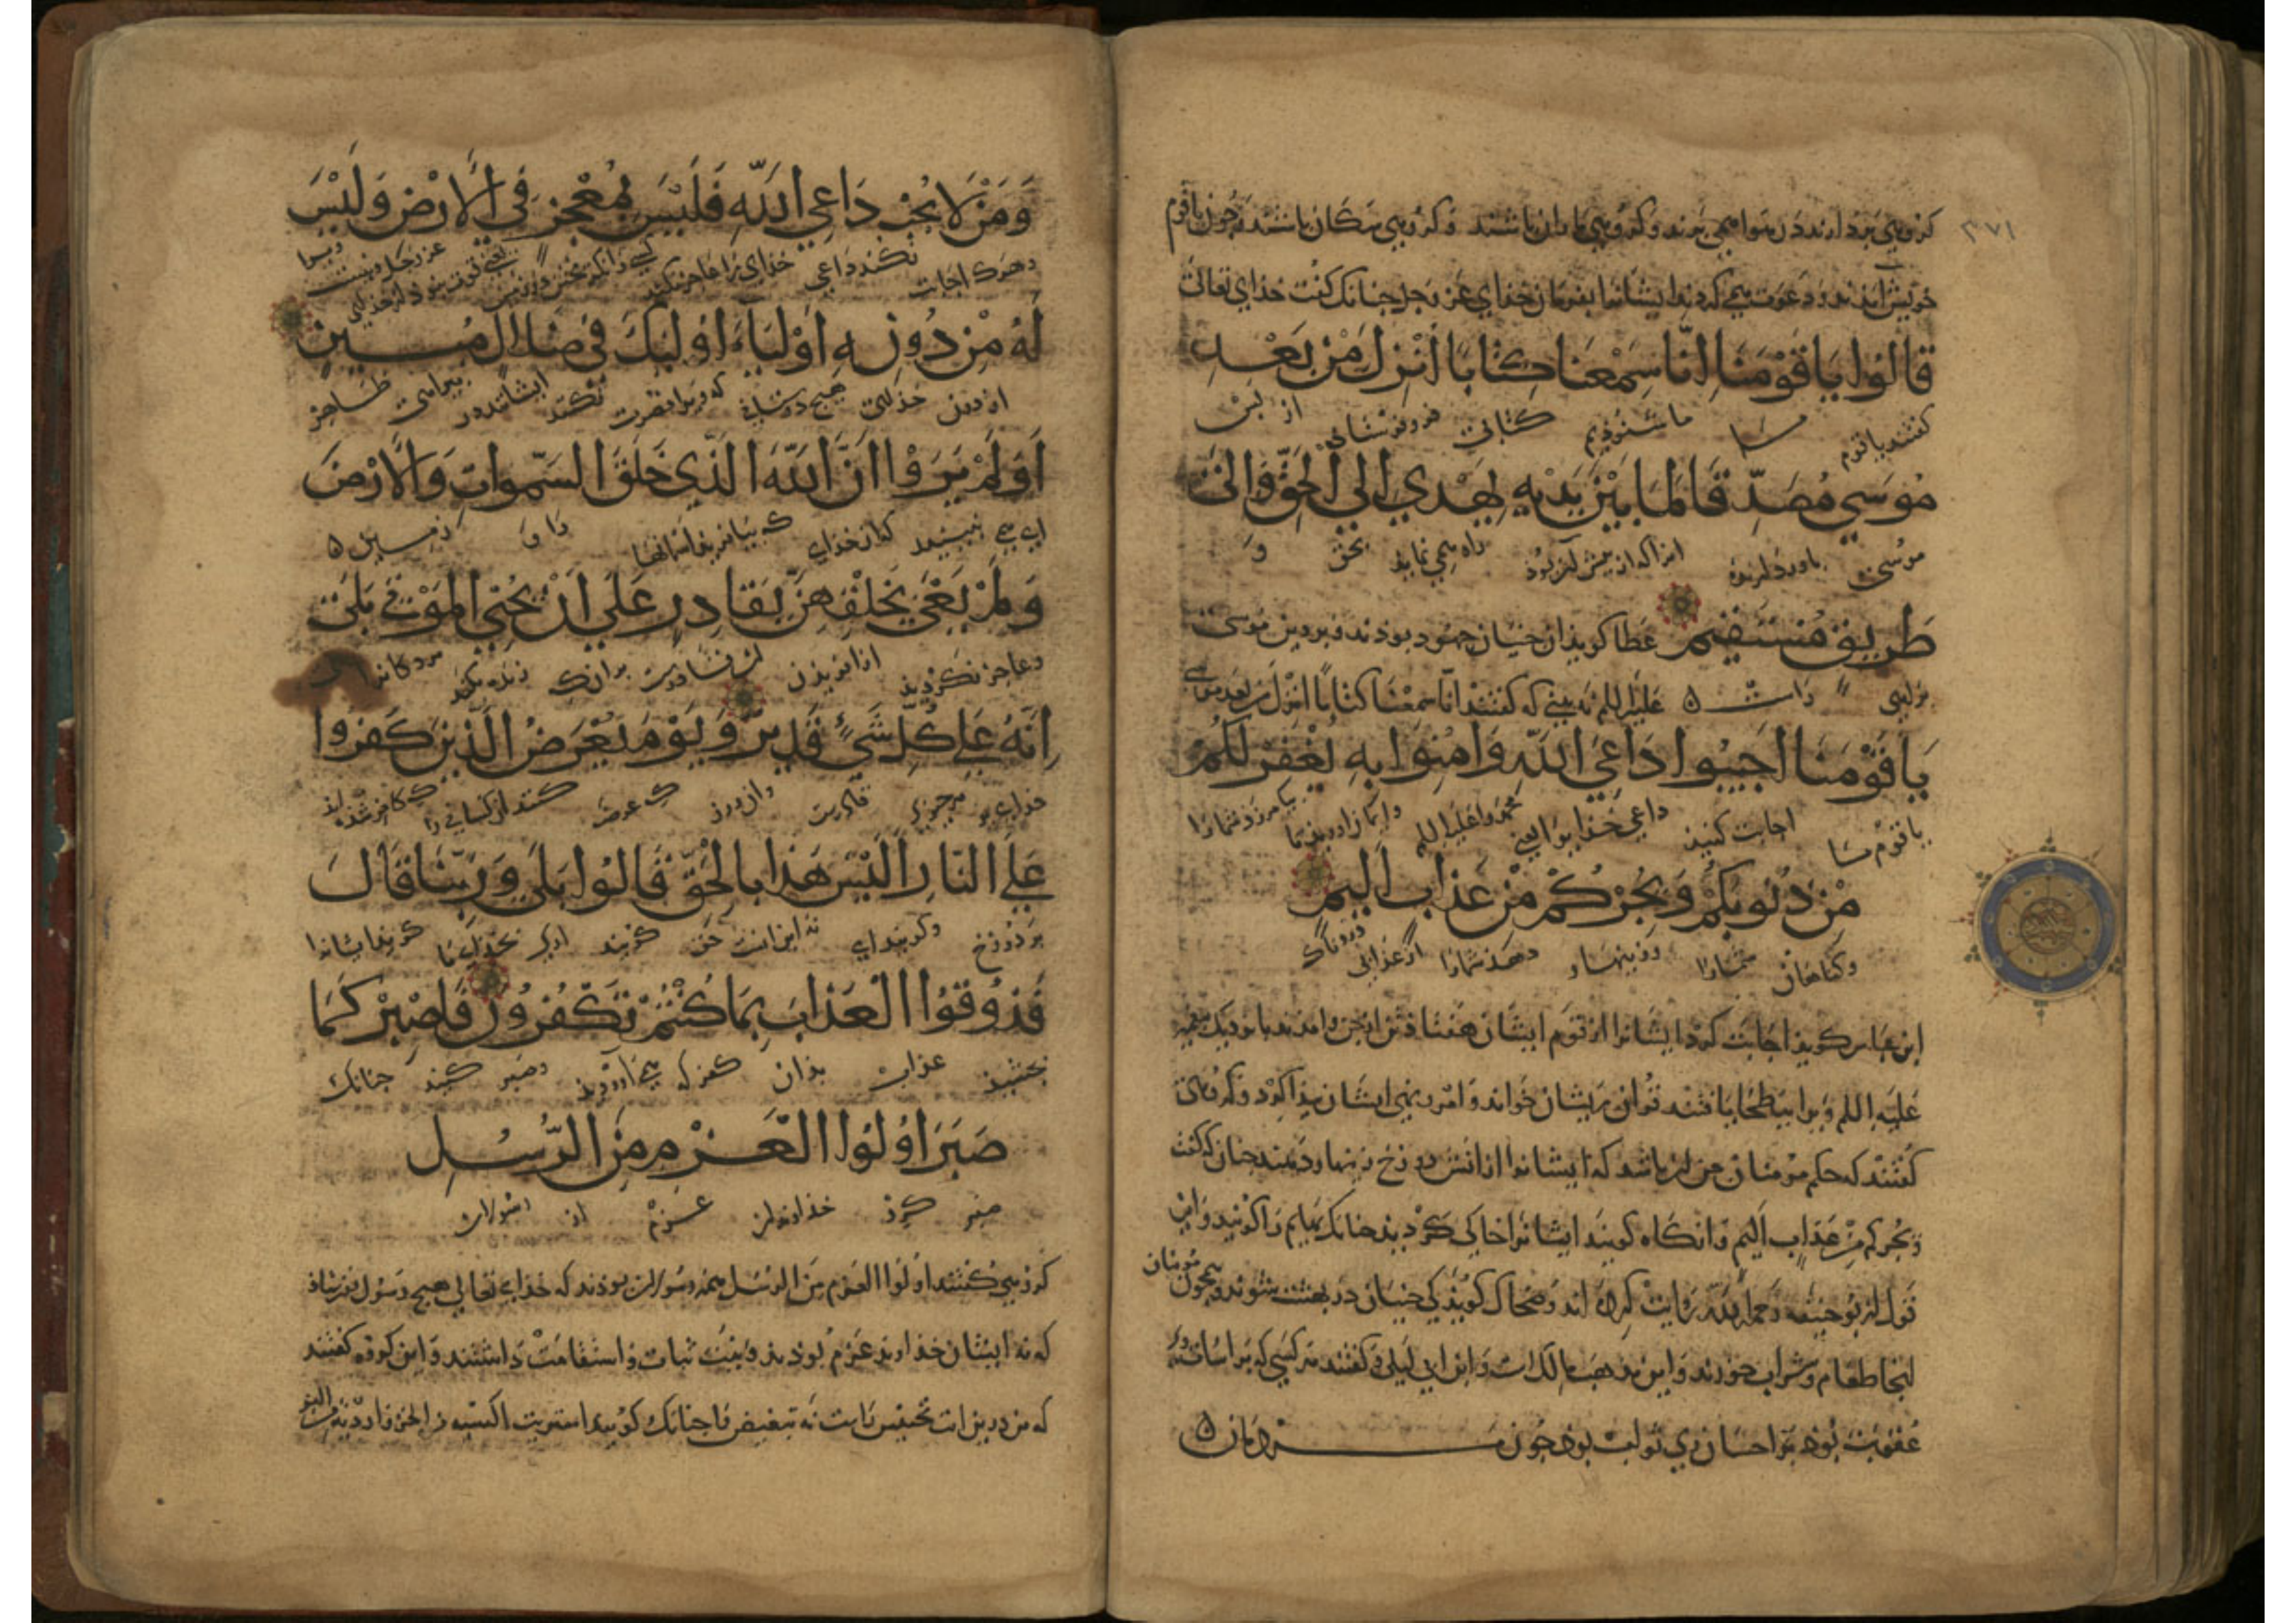 ٣٧١
کروهی پرند دارند در هوا همی پرند و کروهی ماران باشند و کروهی سکان باشند و چون با قوم
خویش آمدند و دعوت همی کردند ایشانرا بفرمان خدای عز و جل چنانک کفت خدای تعالی
قَالُوا يَا قَوْمَنَا اِنَّا سَمِعْنَا كِتَابًا اُنْزِلَ مِنْ بَعْدِ
کفتند یا قوم ما ما شنوذیم کتابی فروفرستاده از پس
مُوسَي مُصَدِّقًا لِمَا بَيْنَ يَدَيْهِ يَهْدِي اِلَي الْحَقِّ وَاِلَيٰ
موسی باوردارنده انرا که از پیش آن بوذ راه همی نماید بحق و
طَرِيقٍ مُسْتَقِيمٍ عطا کوید ان جنیان جهود بوذند و بر دین موسی
علیه السلم نه بینی که کفتند انا سمعنا کتابا انزل من بعد موسی
يَا قَوْمَنَا اَجِيبُوا دَاعِيَ اللّهِ وَاٰمِنُوا بِهِ يَغْفِرْ لَكُمْ
یا قوم ما اجابت کنید داعی خدایرا یعنی محمد را علیه السلم وایمان اورید بما بیامرزد شمارا
مِنْ ذُنُوبِكُمْ وَيُجِرْكُمْ مِنْ عَذَابٍ اَلِيمٍ
و کناهان شمارا وزینهار دهد شمارا از عذابی دردناک
ابن عباس کوید اجابت کرد ایشانرا از قوم ایشان هفتاد تن از جن وامدند با نزدیک پیغمبر
علیه السلم و یرا ببطحا یافتند قران بر ایشان خواند و امر و نهی ایشان پیدا کرد و کروهی
کفتند که حکم مؤمنان جن ان باشد که ایشانرا از اتش دوزخ زینهار دهند چنان که کفت
ویجرکم من عذاب الیم وانکاه کویند ایشانرا خاک کردید چنانک بهایم را کویند واین
قول از بو حنیفه رحمه الله روایت کرده اند و ضحاک کوید که جنیان در بهشت شوند و همچون مؤمنان
انجا طعام و شراب خورند و این مذهب مالک است و ابن ابی لیلی و کفتند هر کسی که بر اسات وی
عقوبت بوذ بر احسان وی ثواب بوذ چون ادمیان
وَمَنْ لَا يُجِبْ دَاعِيَ اللّهِ فَلَيْسَ بِمُعْجِزٍ فِي الْاَرْضِ وَلَيْسَ
وهرک اجابت نکند داعی خدای را عاجز نکند
لَهُ مِنْ دُونِهِ اَوْلِيَاءُ اُولٰئِكَ فِي ضَلَالٍ مُبِينٍ
از دون خدای هیچ دوستان که ویرا نصرت کنند ایشانند در بیراهی ظاهر
اَوَلَمْ يَرَوْا اَنَّ اللّهَ الَّذِي خَلَقَ السَّمٰوَاتِ وَالْاَرْضَ
ای می نبینند که ان خدای که بیافرید اسمانها را و زمین
وَلَمْ يَعْيَ بِخَلْقِهِنَّ بِقَادِرٍ عَلَي اَنْ يُحْيِيَ الْمَوْتٰي بَلَيٰ
وعاجز نکردید از افریدن ان قادرست برانک زنده کند مردکانرا
اِنَّهُ عَلَي كُلِّ شَيْءٍ قَدِيرٌ وَيَوْمَ يُعْرَضُ الَّذِينَ كَفَرُوا
هر چیزی قادرست وان روز که عرضه کنند ان کسانی را که کافر شده اند
عَلَي النَّارِ اَلَيْسَ هٰذَا بِالْحَقِّ قَالُوا بَلَيٰ وَرَبِّنَا قَالَ
بر دوزخ و کویند ای نه این است حق کویند اری بخدای ما کوید ایشانرا
فَذُوقُوا الْعَذَابَ بِمَا كُنْتُمْ تَكْفُرُونَ فَاصْبِرْ كَمَا
بچشید عذاب بذان کفر که می اوردید وصبر کنید چنانک
صَبَرَ اُولُوا الْعَزْمِ مِنَ الرُّسُلِ
صبر کرد خداوندان عزم از رسولان
کروهی کفتند اولوا العزم من الرسل همه رسولان بوذند که خدای تعالی هیچ رسول نفرستاد
که نه ایشان خداوند عزم بوذند ونیت ثبات و استقامت داشتند و این کروه کفتند
که من درین ایت تجنیس راست نه تبعیض را چنانک کویند اشتریت اکسیه من الخز واردیة من البز